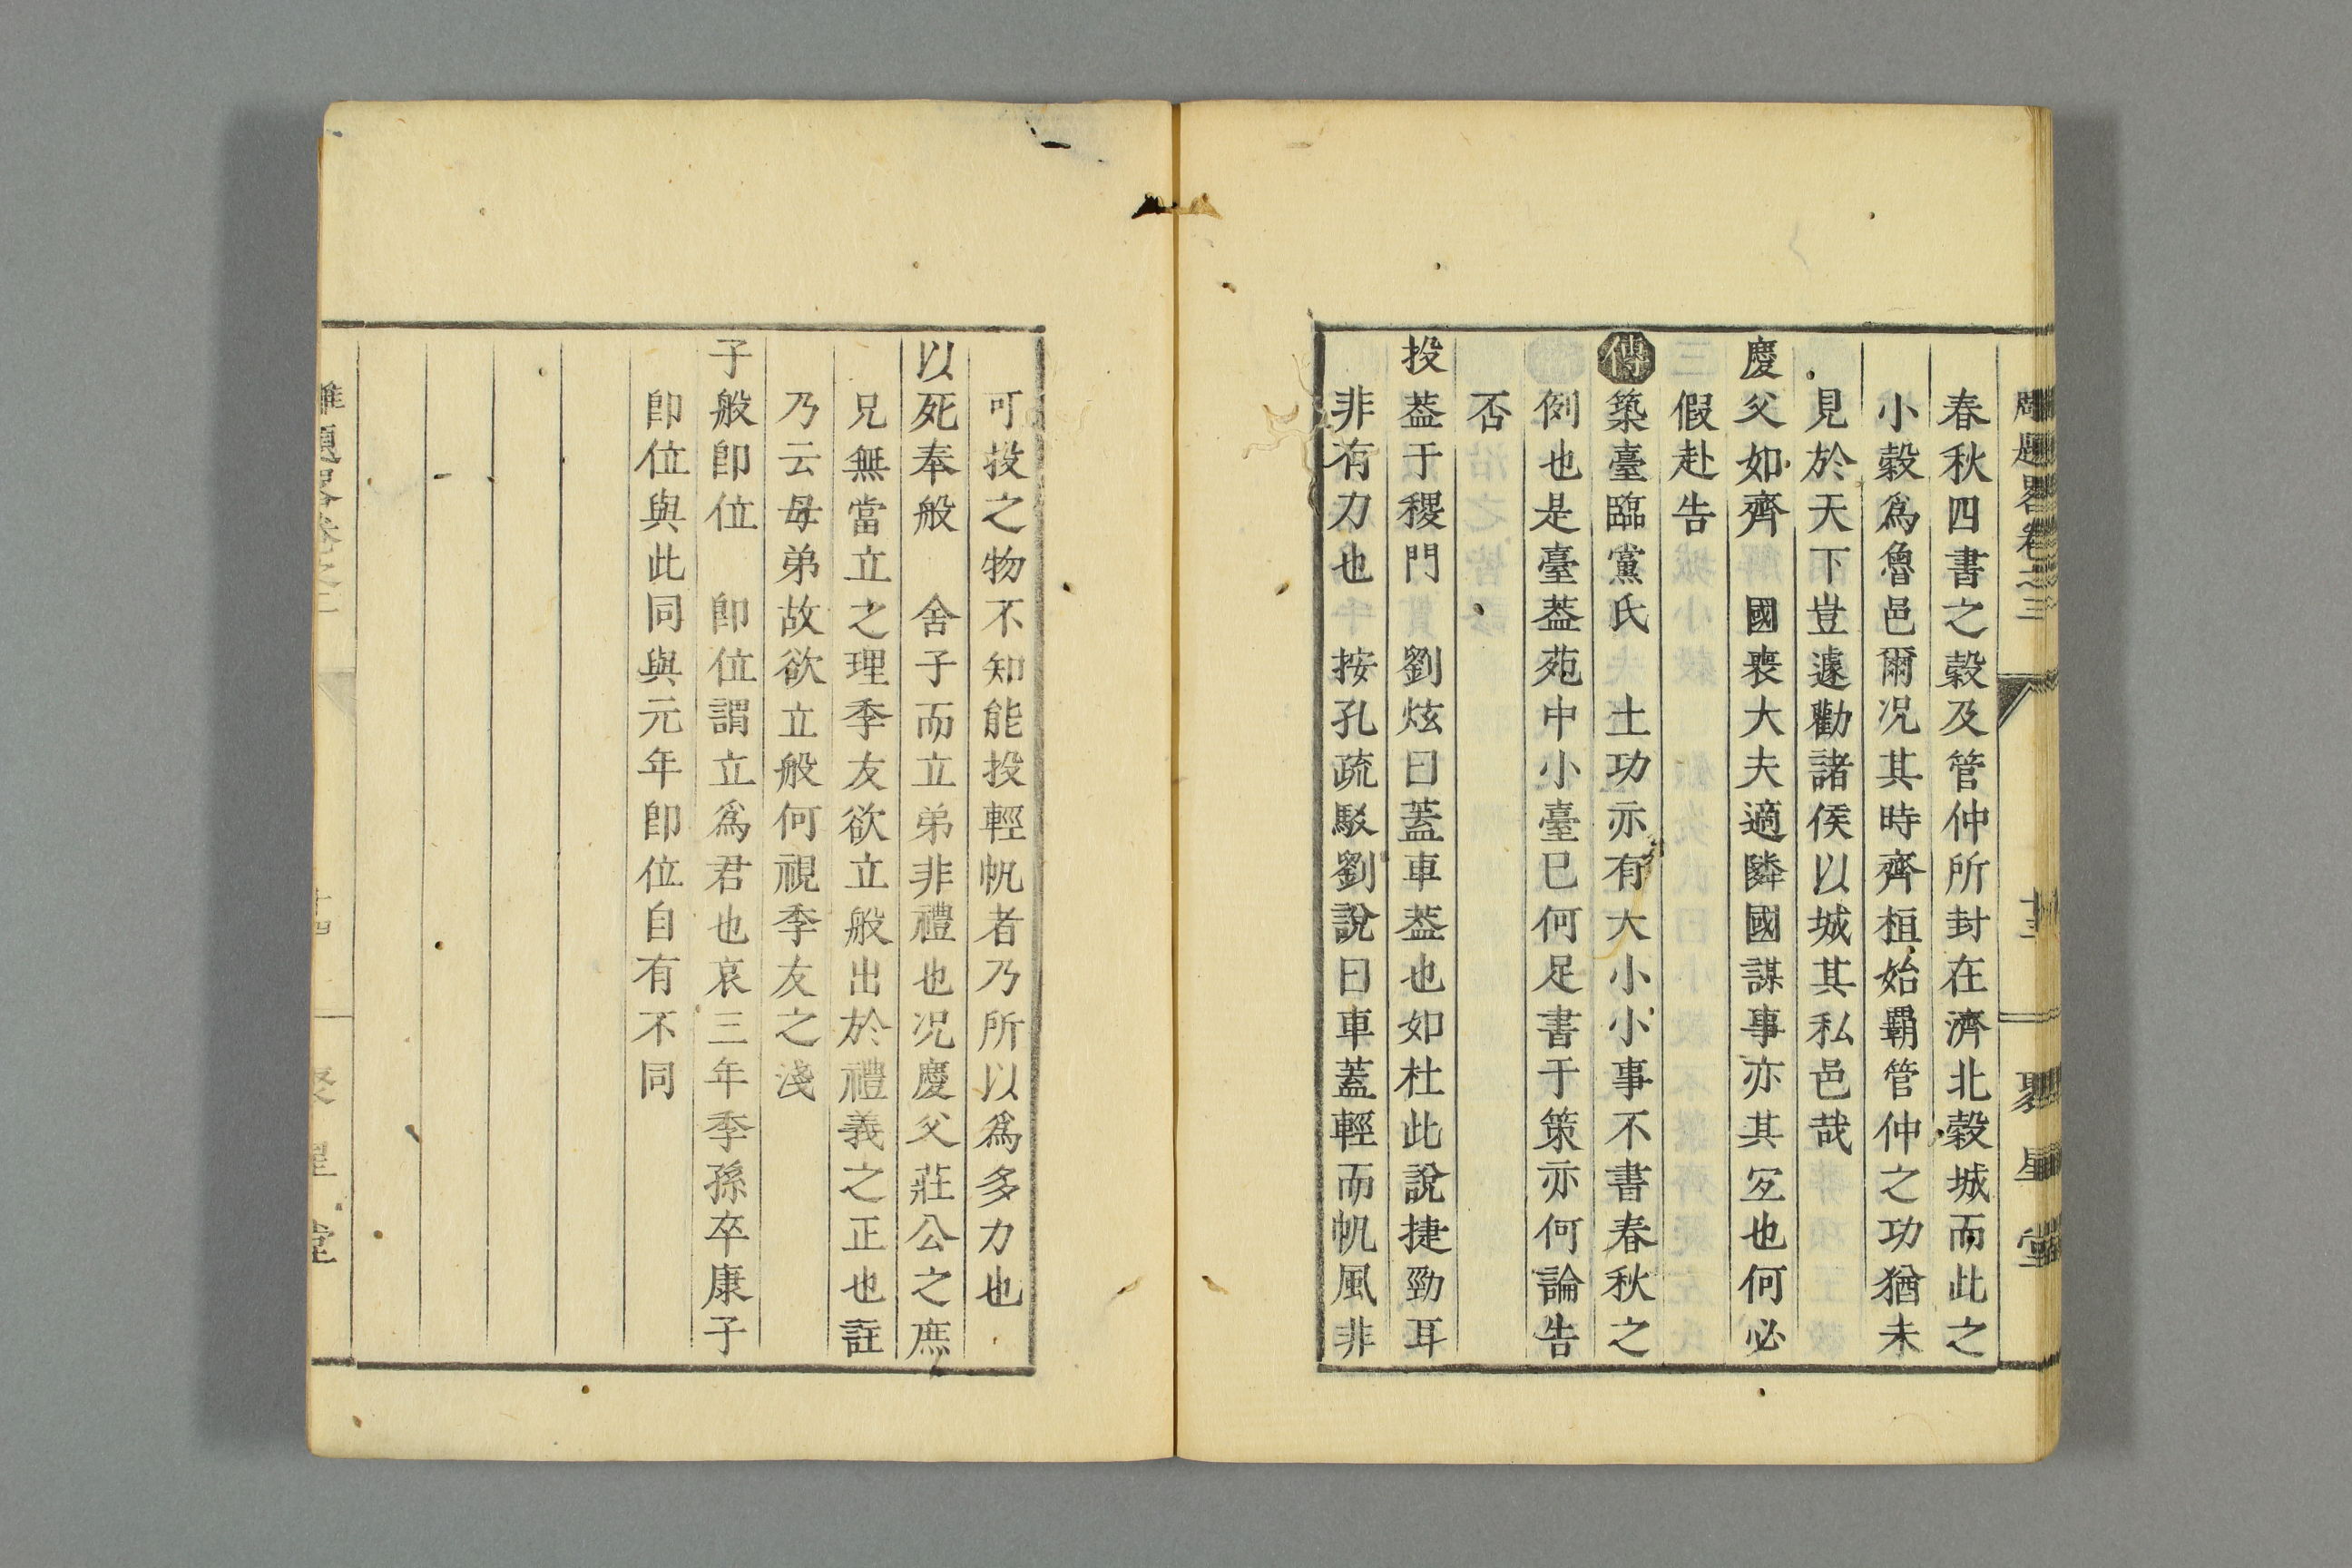 春秋四書之穀及管仲所封在濟北穀城而此之
小穀爲魯邑爾况其時齊桓始覇管仲之功猶未
見於天下豈遽勸諸侯以城其私邑哉
慶父如齊　國喪大夫適隣國謀事亦其宐也何必
假赴告
傳築臺臨黨氏　土功亦有大小小事不書春秋之
例也是臺葢苑中小臺已何足書于策亦何論告
否
投葢于稷門　劉炫曰蓋車葢也如杜此說捷勁耳
非有力也　按孔疏駁劉說曰車蓋輕而帆風非
可投之物不知能投輕帆者乃所以爲多力也
以死奉般　舍子而立弟非禮也况慶父莊公之庶
兄無當立之理季友欲立般出於禮義之正也註
乃云母弟故欲立般何視季友之淺
子般卽位　卽位謂立爲君也哀三年季孫卒康子
卽位與此同與元年卽位自有不同